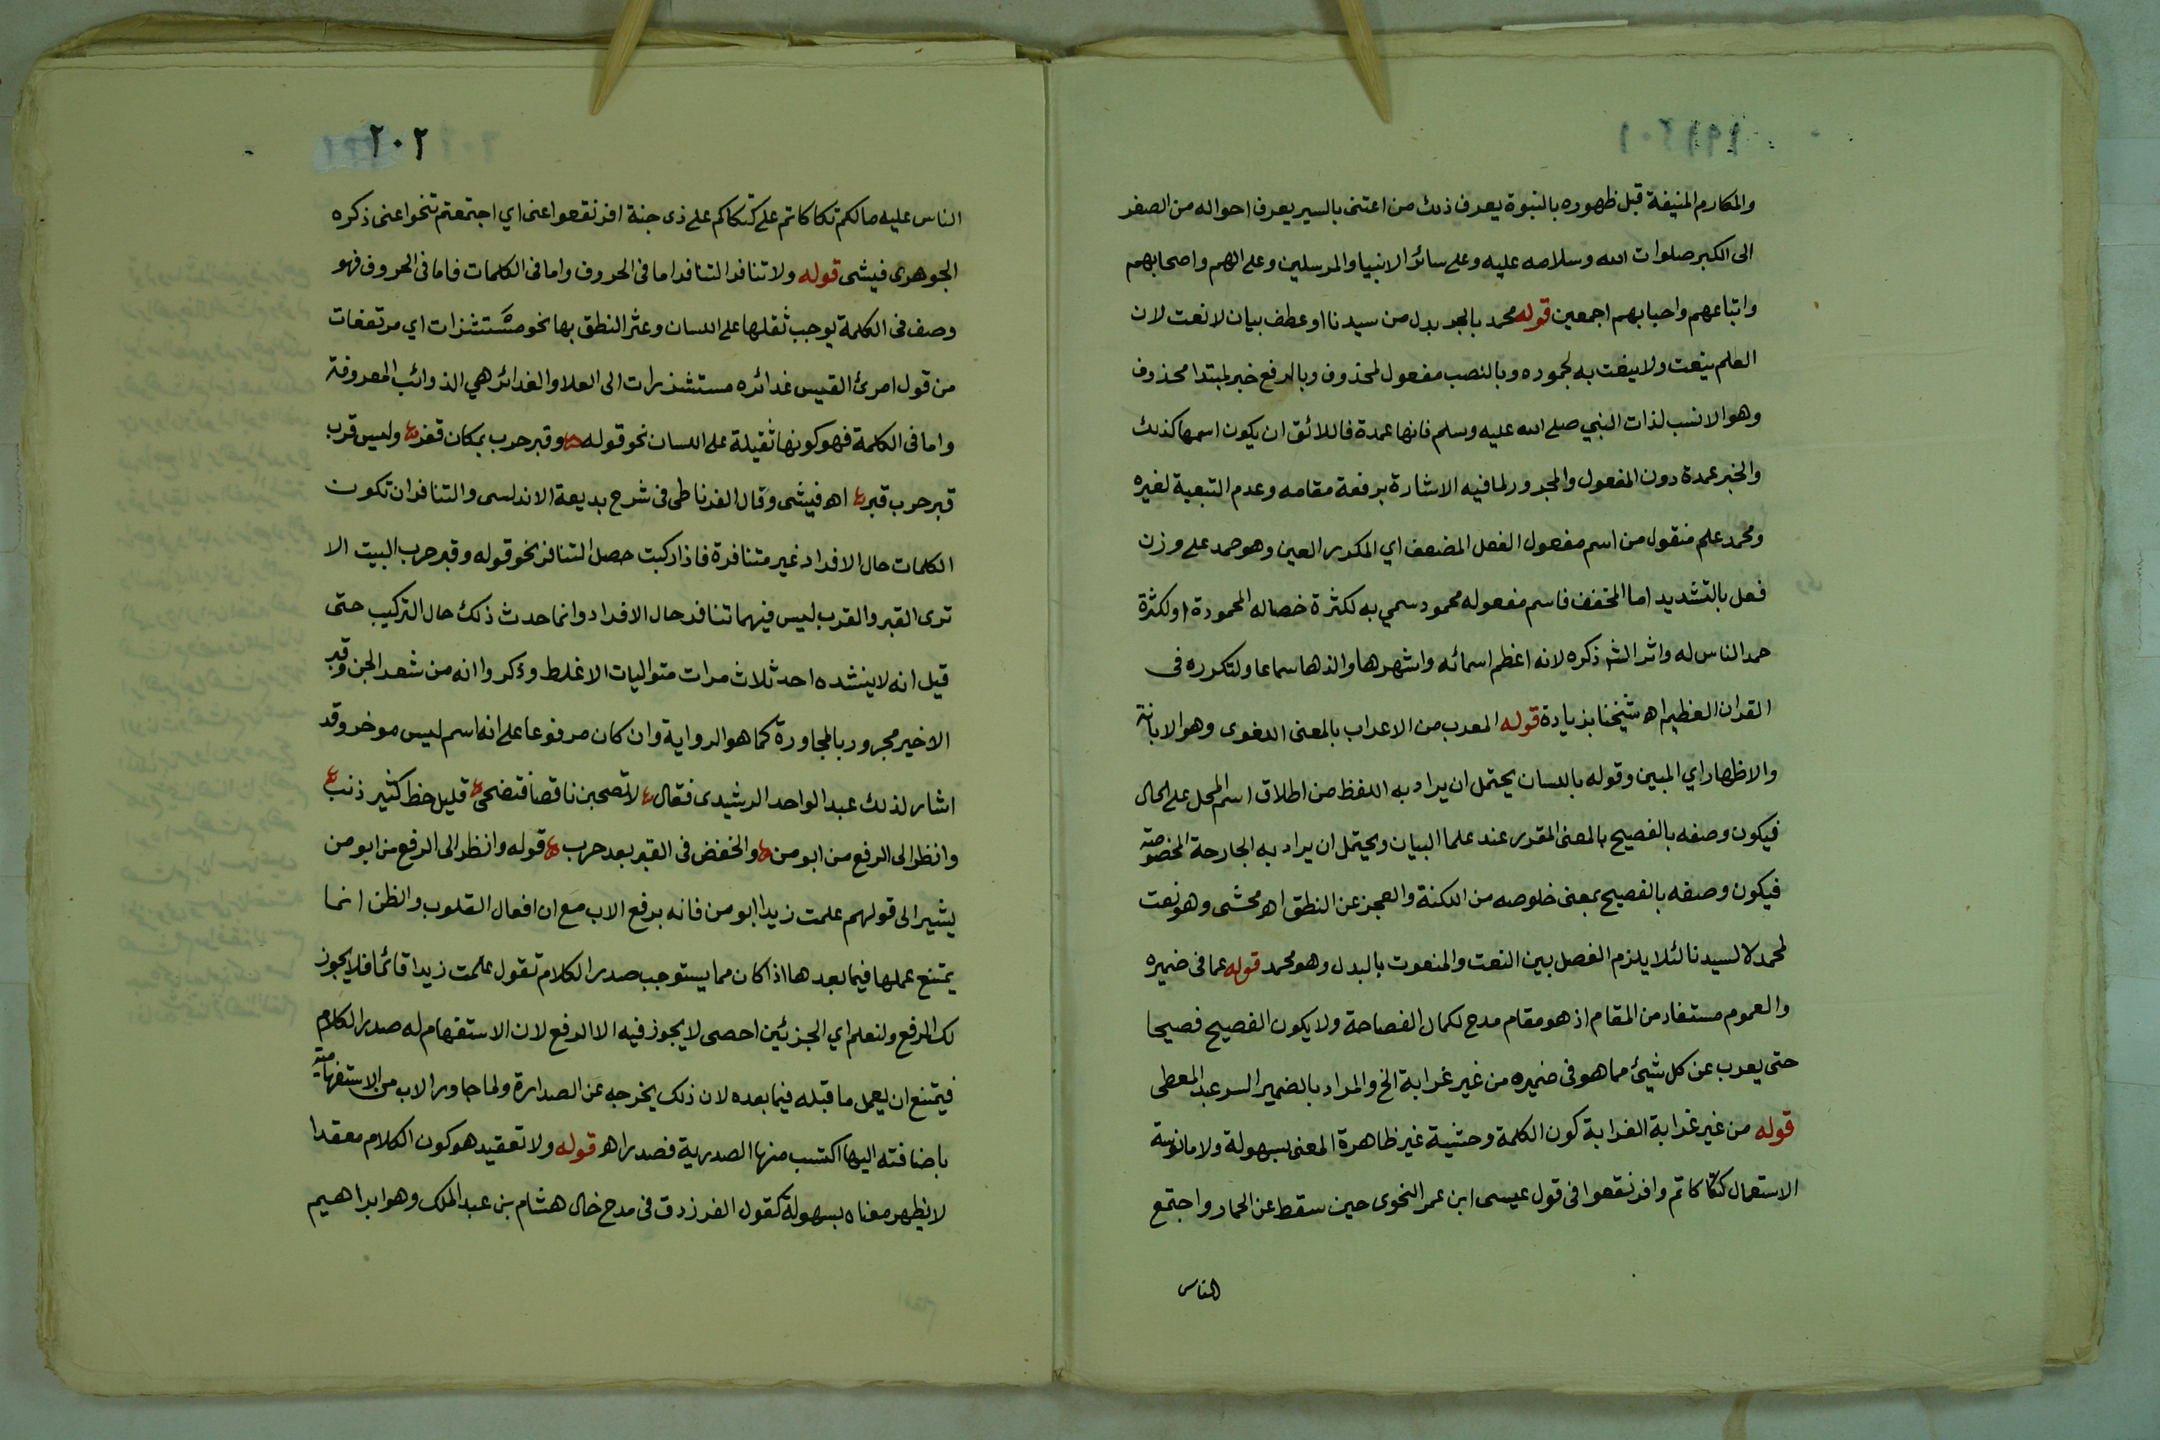 والمكارم المنيفة قبل ظهوره بالنبوة يعرف ذلك من اعتنى بالسير يعرف احواله من الصغر
الى الكبر صلوات الله وسلامه عليه وعلى سائر الانبيا والمرسلين وعلى الهم واصحابهم
واتباعهم واحبابهم اجمعين قوله محمد بالجر بدل من سيدنا او عطف بيان لا نعت لان
العلم ينعت ولا ينعت به لجموده وبالنصب مفعول لمحذوف وبالرفع خبر لمبتدا محذوف
وهو الانسب لذات النبي صلى الله عليه وسلم فانها عمدة فاللائق ان يكون اسمها كذلك
والخبر عمدة دون المفعول والمجرور لما فيه الاشارة برفعة مقامه وعدم التبعية لغيره
ومحمد علم منقول من اسم مفعول الفعل المضعف اي المكرر العين وهو حمد على وزن
فعل بالتشديد اما المخفف فاسم مفعوله محمود سمي به لكثرة خصاله المحمودة او لكثرة
حمد الناس له واثر الش ذكره لانه اعظم اسمائه واشهرها والذها سماعا ولتكرره فى
القران العظيم اه شيخنا بزيادة قوله المعرب من الاعراب بالمعنى اللغوى وهو الابانة
والاظهار اي المبين وقوله باللسان يحتمل ان يراد به اللفظ من اطلاق اسم المحل على الحال
فيكون وصفه بالفصيح بالمعنى المقرر عند علما البيان ويحتمل ان يراد به الجارحة المخصوصة
فيكون وصفه بالفصيح بمعنى خلوصه من اللكنة والعجز عن النطق اه محشى وهو نعت
لمحمد لا لسيدنا لئلا يلزم الفصل بين النعت والمنعوت بالبدل وهو محمد قوله عما فى ضميره
والعموم مستفاد من المقام اذ هو مقام مدح لكمال الفصاحة ولا يكون الفصيح فصيحا
حتى يعرب عن كل شيئ مما هو فى ضميره من غير غرابة الخ والمراد بالضمير السر عبد المعطى
قوله من غير غرابة الغرابة كون الكلمة وحشية غير ظاهرة المعنى بسهولة ولا مانوسة
الاستعمال كتكاكاتم وافرنقعوا فى قول عيسى ابن عمر النحوى حين سقط عن الحمار واجتمع
الناس
٢٠٢
الناس عليه مالكم تكاكاتم على كتكاكم على ذى جنة افرنقعوا عنى اي اجتمعتم تنحوا عنى ذكره
الجوهرى فيشى قوله ولا تنافر التنافر اما فى الحروف واما فى الكلمات فاما فى الحروف فهو
وصف فى الكلمة يوجب ثقلها على اللسان وعثر النطق بها نحو مستشزرات اي مرتفعات
من قول امرئ القيس غدائره مستشزرات الى العلا والغدائر هي الذوائب المعروفة
واما فى الكلمة فهو كونها ثقيلة على اللسان نحو قوله وقبر حرب بمكان قفر وليس قرب
قبر حرب قبر اه فيشى وقال الغرناطى فى شرح بديعة الاندلسى والتنافر ان تكون
الكلمات حال الافراد غير متنافرة فاذا ركبت حصل التنافر نحو قوله وقبر حرب البيت الا
ترى القبر والقرب ليس فيهما تنافر حال الافراد وانما حدث ذلك حال التركيب حتى
قيل انه لا ينشده احد ثلاث مرات متواليات الا غلط وذكروا انه من شعر الجن وقبر
الاخير مجرور بالمجاورة كما هو الرواية وان كان مرفوعا على انه اسم ليس موخر وقد
اشار لذلك عبد الواحد الرشيدى فقال لا تصحبن ناقصا فتضحى قليل حظ كثير ذنب
وانظر الى الرفع من ابو من والخفض فى القبر بعد حرب قوله وانظر الى الرفع من ابو من
يشير الى قولهم علمت زيدا ابو من فانه برفع الاب مع ان افعال القلوب والظن انما
يمتنع عملها فيما بعدها اذا كان مما يستوجب صدر الكلام تقول علمت زيدا قائما فلا يجوز
لك الرفع ولنعلم اي الجزئين احصى لا يجوز فيه الا الرفع لان الاستفهام له صدر الكلام
فيمتنع ان يعمل ما قبله فيما بعده لان ذلك يخرجه عن الصدارة ولما جاور الاب من الاستفهامية
باضافته اليها اكتسب منها الصدرية فصدر اه قوله ولا تعقيد هو كون الكلام معقدا
لا يظهر معناه بسهولة كقول الفرزدق فى مدح خال هشام بن عبد الملك وهو ابراهيم